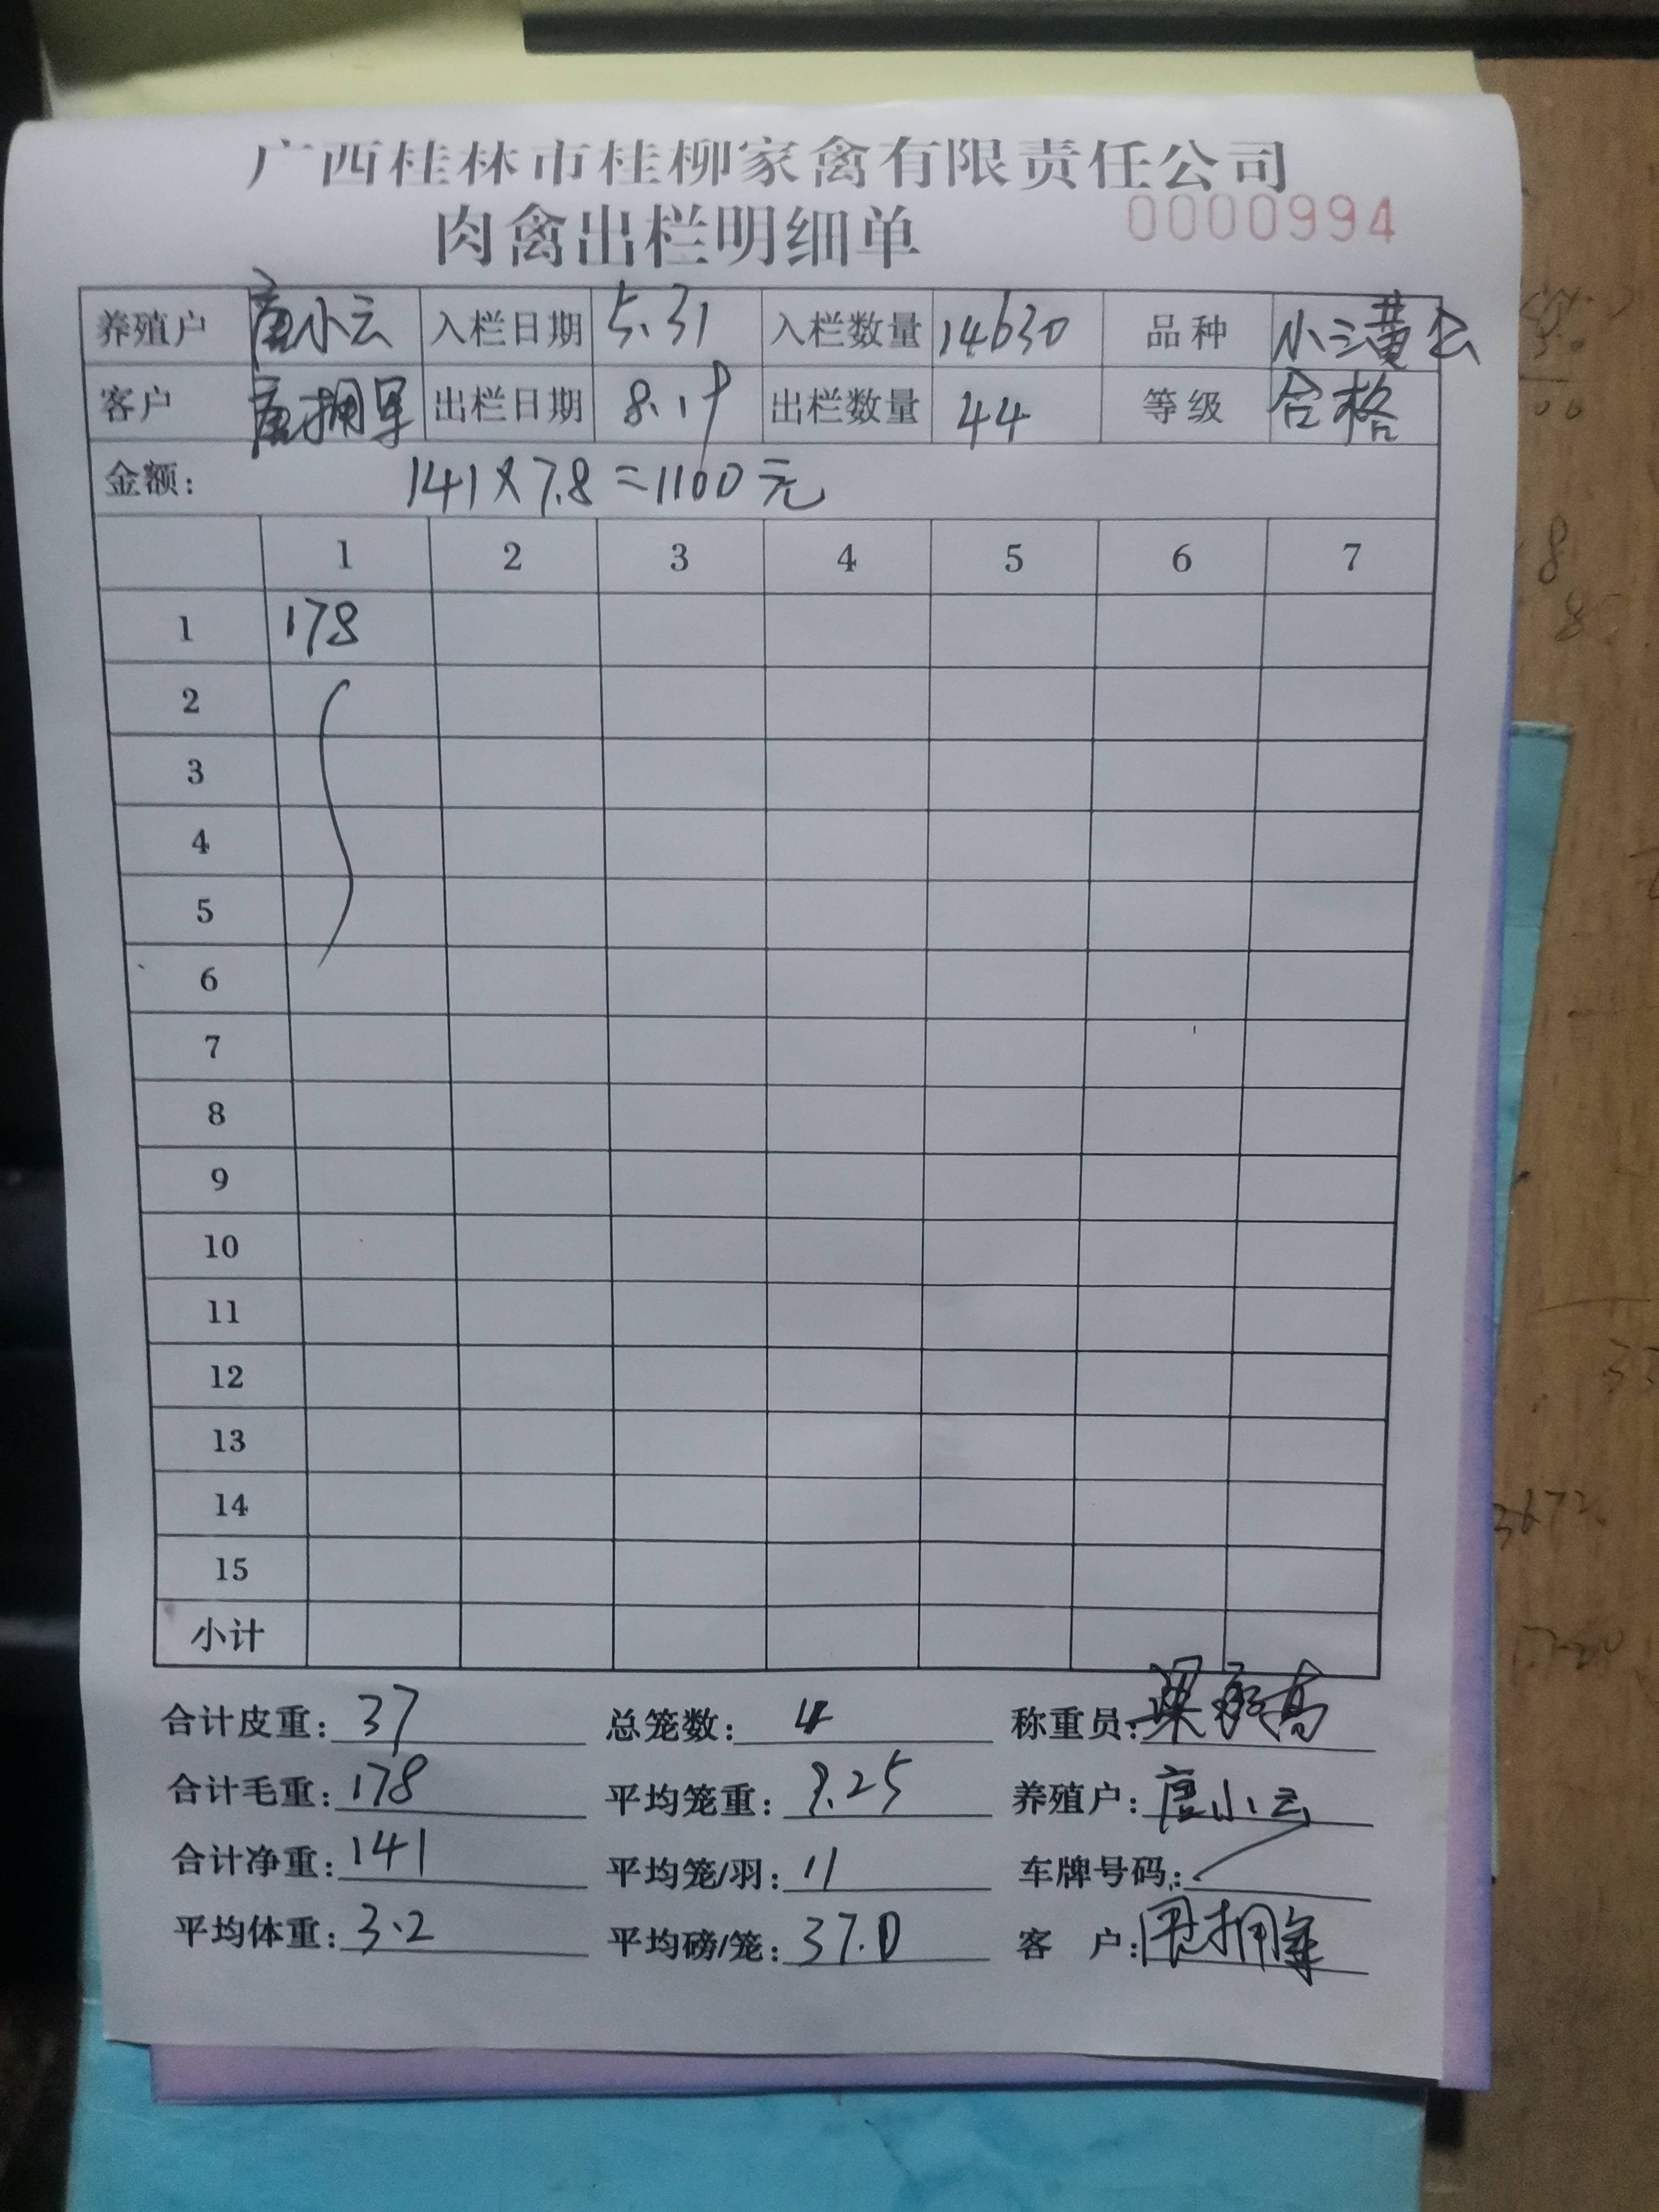 广西桂林市桂柳家禽有限责任公司
肉禽出栏明细单 0000994
养殖户 唐小云 入栏日期 5.31 入栏数量 14630 品种 小三黄公
客户 唐拥军 出栏日期 8.19 出栏数量 44 等级 合格
金额: 141×7.8=1100元
1 2 3 4 5 6 7
1 178
2
3
4
5
6
7
8
9
10
11
12
13
14
15
小计
合计皮重: 37 总笼数: 4 称重员:
合计毛重: 178 平均笼重: 9.25 养殖户: 唐小云
合计净重: 141 平均笼/羽: 11 车牌号码:
平均体重: 3.2 平均磅/笼: 37.0 客 户: